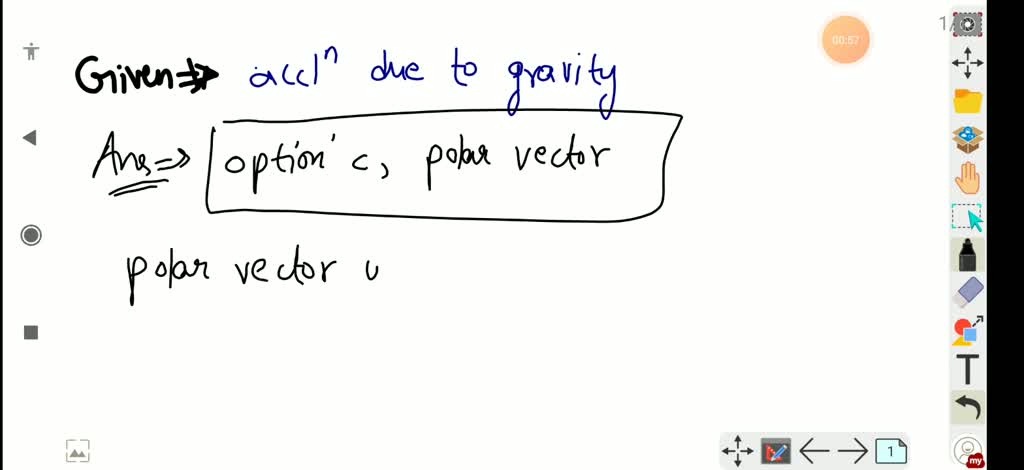 00:57
1/
Given ⇒ accl^n due to gravity
Ans ⇒ option' c, polar vector
polar vector
T
1
my